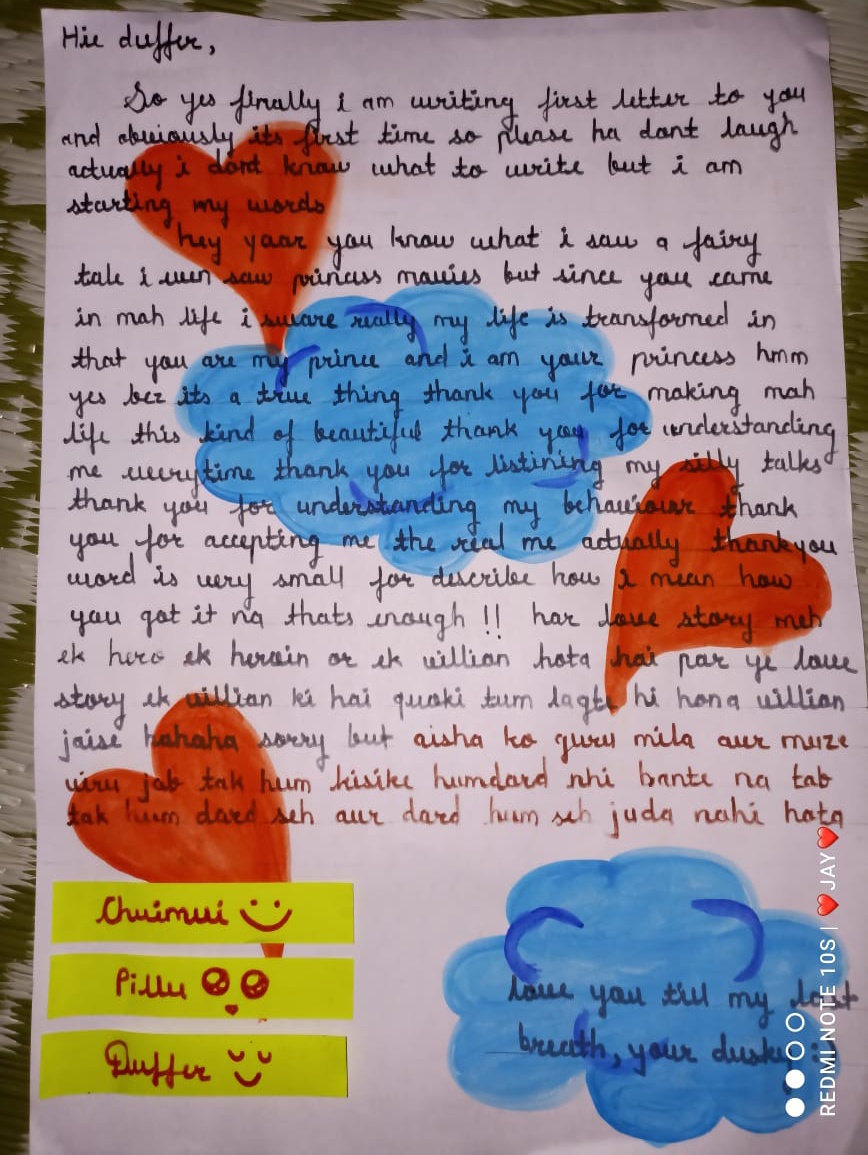 Hie duffer,
So yes finally i am writing first letter to you
and obviously its first time so please ha dont laugh
actually i dont know what to write but i am
starting my words
hey yaar you know what i saw a fairy
tale i even saw princess movies but since you came
in mah life i sware really my life is transformed in
that you are my prince and i am your princess hmm
yes bcz its a true thing thank you for making mah
life this kind of beautiful thank you for understanding
me everytime thank you for listining my silly talks
thank you for understanding my behaviour thank
you for accepting me the real me actually thankyou
word is very small for describe how i mean how
you got it na thats enough !! har love story meh
ek hero ek heroin or ek villian hota hai par ye love
story ek villian ki hai quoki tum lagte hi hona villian
jaise hahaha sorry but aisha ko guru mila aur muze
viru jab tak hum kisike humdard nhi bante na tab
tak hum dard seh aur dard hum seh juda nahi hota
Chuimui
Pillu
Duffer
love you till my last
breath, your dusky :)
REDMI NOTE 10S | ❤JAY❤